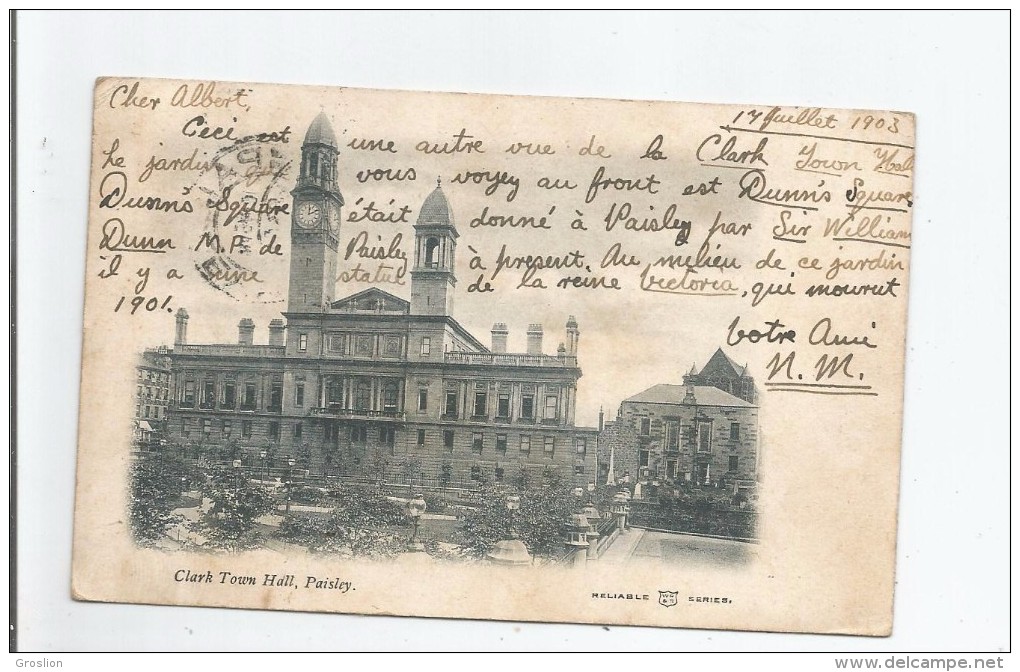 Cher Albert,
17 Juillet 1903
Ceci est une autre vue de la Clark Town Hall
Le jardin que vous voyey au front est Dunn's Square
Dunn's Square était donné à Paisley par Sir William
Dunn M.P. de Paisley à present. Au milieu de ce jardin
il y a une statue de la reine Victoria, qui mourut
1901.
Votre Ami
N. M.
Clark Town Hall, Paisley.
RELIABLE WR & S SERIES.
© delcampe.net
Groslion